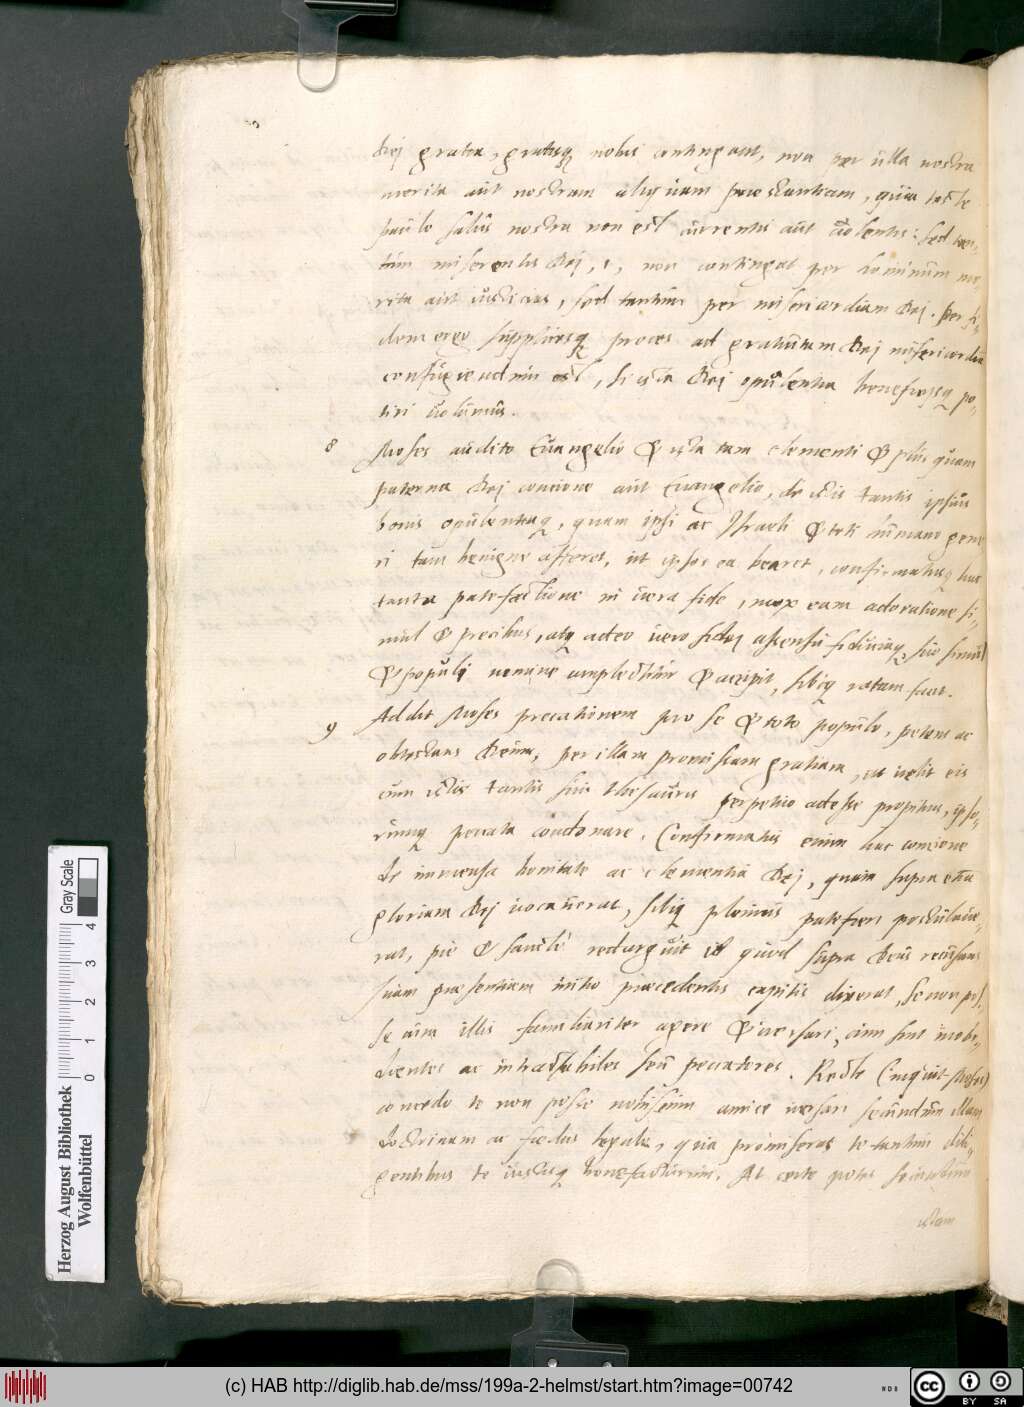 Dej gratia, gratisq nobis contingant, non per ulla nostra
merita aut nostram aliquam praestantiam, quia teste
Paulo salus nostra non est currentis aut volentis: sed tan-
tum miserentis Dej, i, non contingat per hominum me-
rita aut iusticias, sed tantum per misericordiam Dej. Per fi-
dem ergo supplicesq preces ad gratuitam Dej misericordia
confugiendum est, si ista Dej opulentia beneficijsq po-
tiri volumus.
8 Moses audito Euangelio & ista tam clementi & plus quam
paterna Dej concione aut Euangelio, de istis tantis ipsius
bonis opulentiaq, quam ipsi ac Israeli & toti humano gene
ri tam benigne afferet, ut ipsos ea bearet, confirmatusq hac
tanta patefactione in vera fide, mox eam adoratione si-
mul & precibus, atq adeo vero fidej assensu fiduciaq, suo simul
& populj nomine amplectitur & accipit, sibiq ratam facit.
9 Addit Moses precationem pro se & toto populo, petens ac
obtestans Deum, per illam promissam gratiam, ut velit eis
cum istis tantis suis thesauris perpetuo adesse propitius, ipso-
rumq peccata condonare. Confirmatus enim hac concione
de immensa bonitate ac clementia Dej, quam supra etia
gloriam Dej vocauerat, sibiq plenius patefieri postulaue-
rat, pie & sancte redarguit id quod supra Deus recusans
suam praesentiam initio praecedentis capitis dixerat, se non pos-
se cum illis familiariter agere & versari, cum sint inobe-
dientes ac intractabiles seu peccatores. Recte (inquit Moses)
concedo te non posse nobiscum amice versari secundum illam
doctrinam ac foedus legale, quia promiseras te tantum dili-
gentibus te iustisq benefacturum. At certe potes secundum
istam
Herzog August Bibliothek
Wolfenbüttel
0 1 2 3 4
Gray Scale
(c) HAB http://diglib.hab.de/mss/199a-2-helmst/start.htm?image=00742
cc BY SA